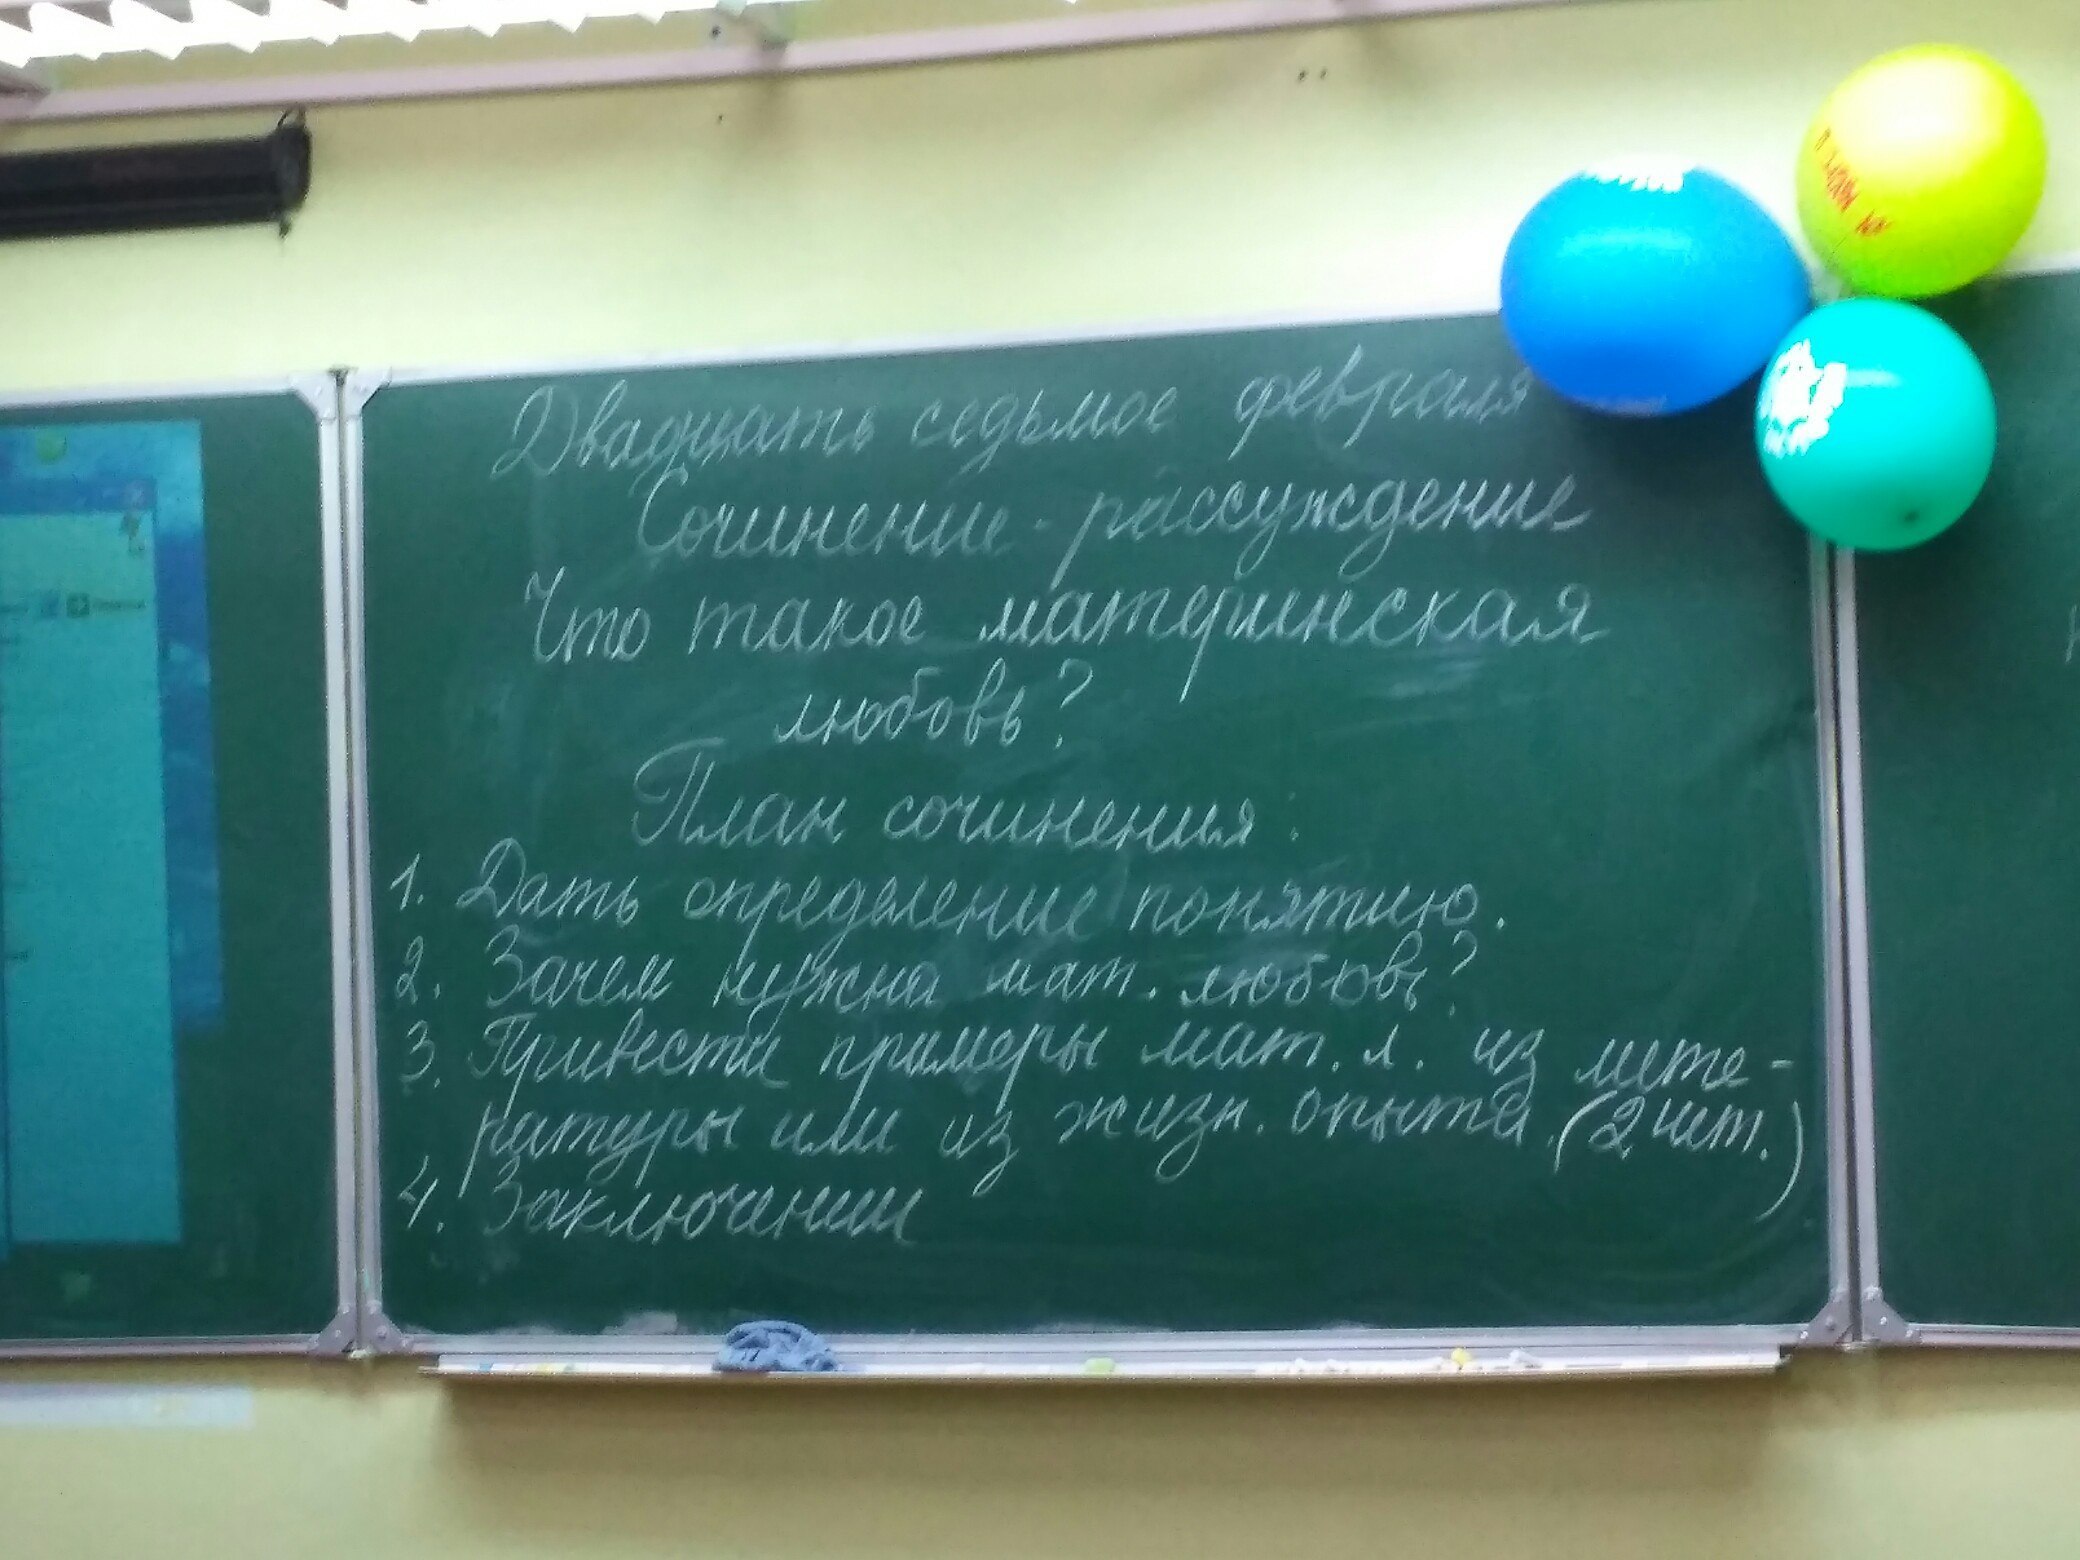 Двадцать седьмое февраля
Сочинение-рассуждение
Что такое материнская
любовь?
План сочинения:
1. Дать определение понятию.
2. Зачем нужна мат. любовь?
3. Привести примеры мат. л. из лите-
ратуры или из жизн. опыта. (2 шт.)
4. Заключение